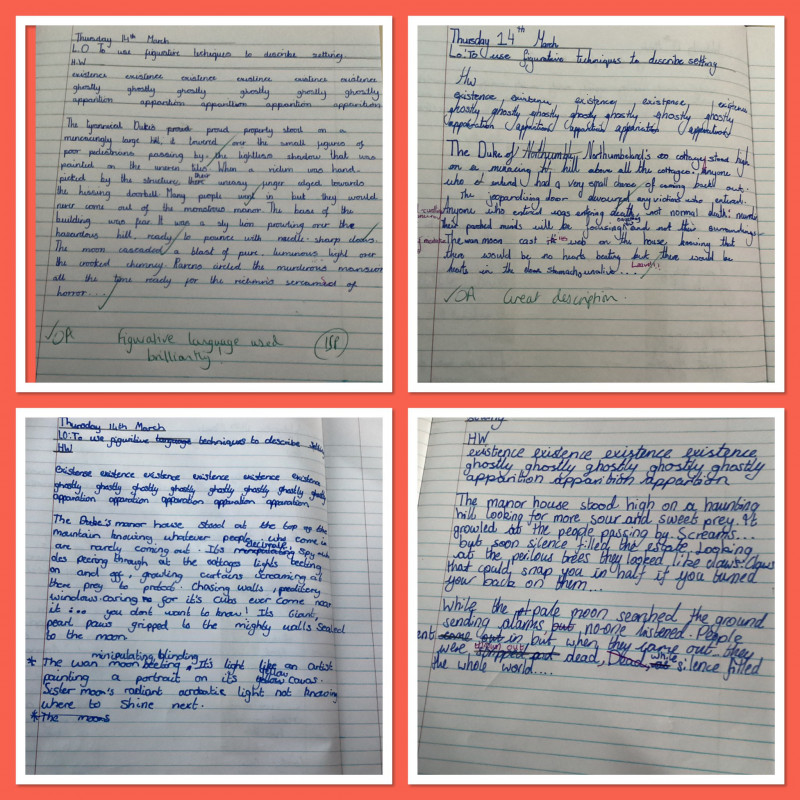 Thursday 14th March
L.O To use figurative techniques to describe setting.
H.W
existence existence existence existence existence existence
ghostly ghostly ghostly ghostly ghostly ghostly
apparition apparition apparition apparition apparition
The tyrannical Duke's proud proud property stood on a
menacingly large hill. it towered over the small figures of
poor pedestrians passing by. the lightless shadow that was
painted on the uneven When a victim was hand
picked by the structure, their uneasy finger edged towards
the hissing doorbell. Many people went in but they would
never come out of the monstrous manor. The base of the
building was fear. It was a sly lion prowling over the
hazardous hill, ready to pounce with needle-sharp claws.
The moon cascaded a blast of pure, luminous light over
the crooked chimney. Ravens circled the murderous mansion
all the time ready for the screamed of
horror...
OA Figurative language used
brilliantly.
1SP
Thursday 14th March
Lo: To use figurative techniques to describe setting
HW
existence existence existence existence existence
ghostly ghostly ghostly ghostly ghostly ghostly ghostly
apparition apparition apparition apparition
The Duke of Northumberland's cottage stood high
on a menacing hill above all the cottages. Anyone
who entered had a very small chance of coming back out.
The jeopardising door devoured any victims who entered.
Anyone who entered was enjoying death, not normal death:
their minds will be and not their surroundings
The wan moon cast its web on the house knowing that
there would be no hearts beating but there would be
hearts in the stomachs
OA Great description.
Thursday 14th March
LO: To use figuritive language techniques to describe setting
HW
existense existence existence existence existence existence
ghostly ghostly ghostly ghostly ghostly ghostly ghostly ghostly
apparation apparation apparation apparation apparation
The Duke's manor house stood at the top of the
mountain knowing whatever people who come in
are rarely coming out. It's spy
peering through at the cottages lights
on and off, growling curtains screaming at
there prey to Chasing walls,
windows caring for it's cubs ever come near
it ... you dont want to know! Its Giant,
pearl paws gripped to the mighty walls sealed
to the moon.
minipulating, blinding
* The wan moon It's light like an artist
painting a portrait on its yellow
Sister moon's radiant acrobatic light not knowing
where to shine next.
* The moons
HW
existence existence existence existence
ghostly ghostly ghostly ghostly ghostly
apparition apparition apparition
The manor house stood high on a haunting
hill looking for more sour and sweet prey. It
growled at the people passing by. Screams...
but soon silence filled the estate. Looking
at the perilous trees they looked like claws. Claws
that could snap you in half if you turned
your back on them...
While the pale moon searched the ground
sending but no-one listened. People
went in but when they came out they
were dead, Dead, while silence filled
the whole world....